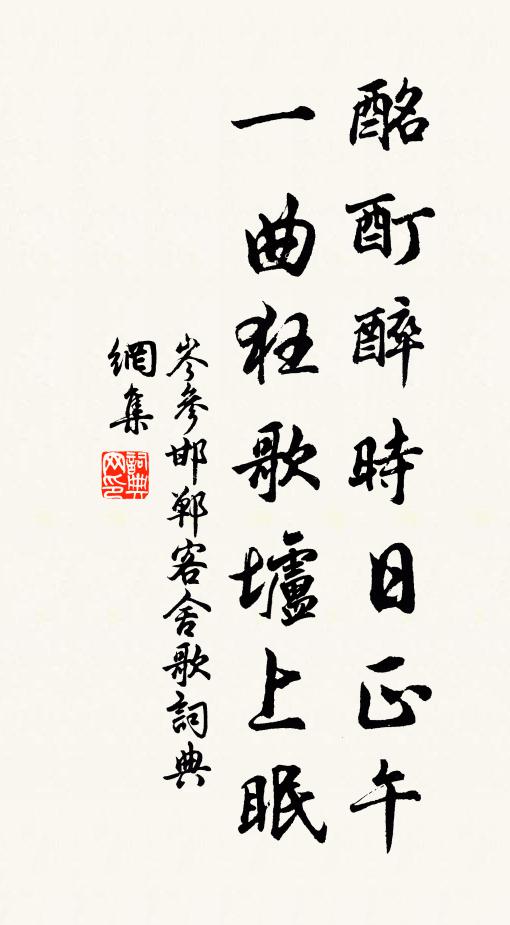 酩酊醉時日正午
一曲狂歌壚上眠
岑參邯鄲客舍歌詞典
網集
詞典
网印